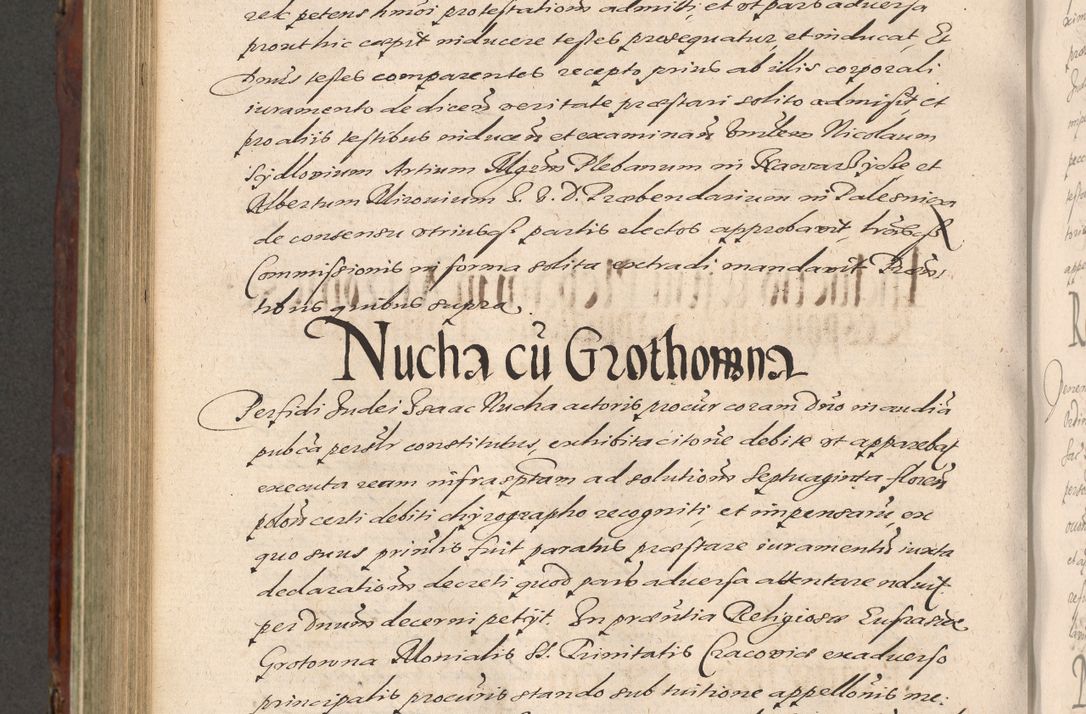 rek petens hmoi protestationem admitti, et ut pars adversa
prout hic cœpit inducere testes prosequatur, et inducat, Et
Dnus testes comparentes recepto prius ab illis corporali
iuramento de dicen veritate præstari solito admisit, et
pro aliis testibus inducen et examinan Nicolaum
Scydlovium Artium Mgrum Plebanum in et
Albertum Mironium I. V. D. Præbendarium in Palesnica
de consensu utriusq partis electos approbavit, trasq
Commissionis in forma solita extradi mandavit Præsen
tibus quibus supra.
Nucha cū Grothowna
Perfidi Judei Isaac Nucha actoris procur coram Dno in audia
pubca persltr constitutus, exhibita citone debite ut apparebat
executa ream infrasptam ad solutionem septuaginta floren
polon certi debiti chyrographo recogniti, et impensarū, ex
quo suus prinlis fuit paratus præstare iuramentū iuxta
declarationem decreti quod pars adversa attentare noluit
per Dnum decerni petijt. In præntia Religiosæ Eufrasiæ
Grotowna Monialis SS. Trinitatis Cracoviæ ex adverso
principalis procuris stando sub tuitione appellonis me: